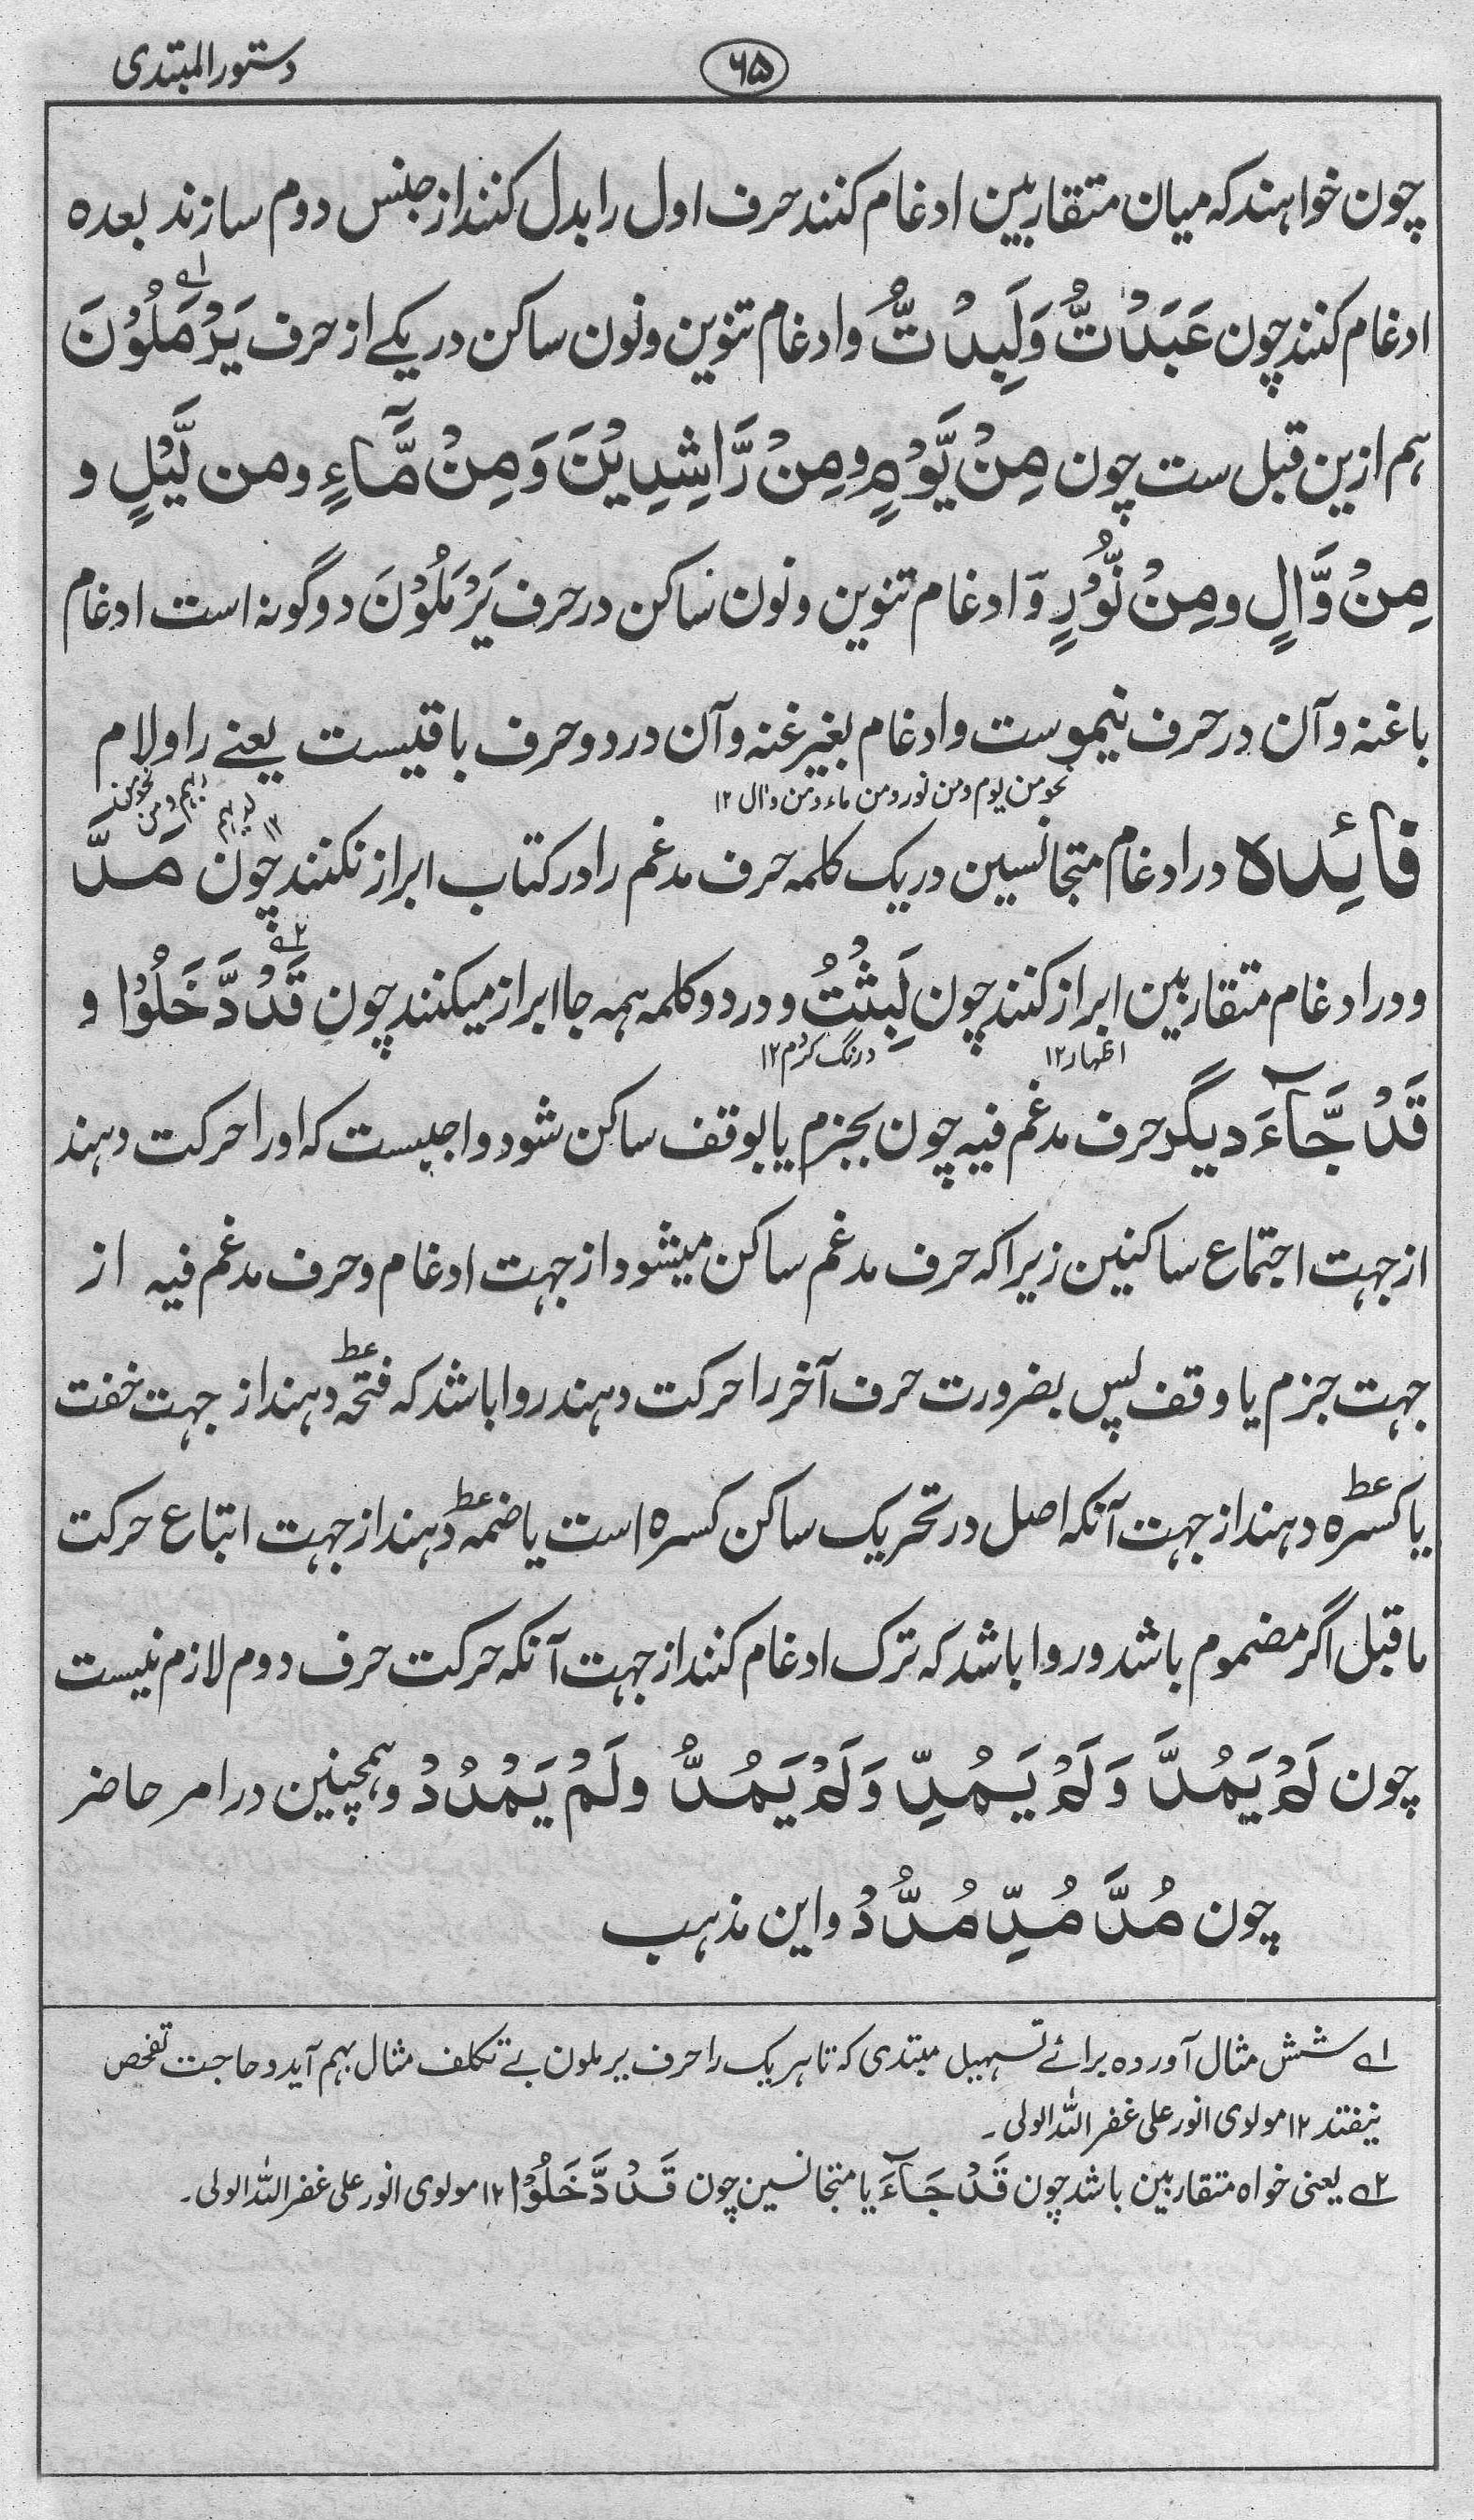 دستور المبتدی
۶۵
چون خواہند کہ میان متقاربین ادغام کنند حرف اول را بدل کنند از جنس دوم سازند بعدہ
ادغام کنند چون عَبَدْتُّ وَلَبِدْتُّ وادغام تنوین ونون ساکن در یکے از حرف یَرْمَلُوْنَ ۱؎
ہم ازین قبل ست چون مِنْ یَّوْمٍ ومِنْ رَّاشِدِیْنَ وَمِنْ مَّآءٍ ومن لَّیْلٍ و
مِنْ وَّالٍ ومِنْ نُّوْرٍ وَادغام تنوین ونون ساکن در حرف یَرْمَلُوْنَ دو گونہ است ادغام
باغنہ وآن در حرف ینموست وادغام بغیر غنہ وآن در دو حرف باقیست یعنے را ولام
نحو من یوم ومن نور ومن ماء ومن وال ۱۲
فائِدہ در ادغام متجانسین در یک کلمہ حرف مدغم را در کتاب ابراز نکنند چون مَدَّ
ودر ادغام متقاربین ابراز کنند چون لَبِثْتُّ ودر دو کلمہ ہمہ جا ابراز میکنند چون قَدْ دَّخَلُوْا ۲؎ و
اظہار ۱۲ درنگ کردم ۱۲
قَدْ جَّآءَ دیگر حرف مدغم فیہ چون بجزم یا بوقف ساکن شود واجبست کہ اورا حرکت دہند
از جہت اجتماع ساکنین زیرا کہ حرف مدغم ساکن میشود از جہت ادغام وحرف مدغم فیہ از
جہت جزم یا وقف پس بضرورت حرف آخر را حرکت دہند روا باشد کہ فتحہ دہند از جہت خفت
یا کسرہ دہند از جہت آنکہ اصل در تحریک ساکن کسرہ است یا ضمہ دہند از جہت اتباع حرکت
ماقبل اگر مضموم باشد وروا باشد کہ ترک ادغام کنند از جہت آنکہ حرکت حرف دوم لازم نیست
چون لَمْ یَمُدَّ وَلَمْ یَمُدِّ وَلَمْ یَمُدُّ ولَمْ یَمْدُدْ وہمچنین در امر حاضر
چون مُدَّ مُدِّ مُدُّ دْ واین مذہب
۱؎ شش مثال آوردہ برائے تسہیل مبتدی کہ تا ہر یک را حرف یرملون بے تکلف مثال بہم آید وحاجت تفحص
نیفتد ۱۲ مولوی انور علی غفر اللہ الولی۔
۲؎ یعنی خواہ متقاربین باشد چون قَدْ جَآءَ یا متجانسین چون قَدْ دَّخَلُوْا ۱۲ مولوی انور علی غفر اللہ الولی۔